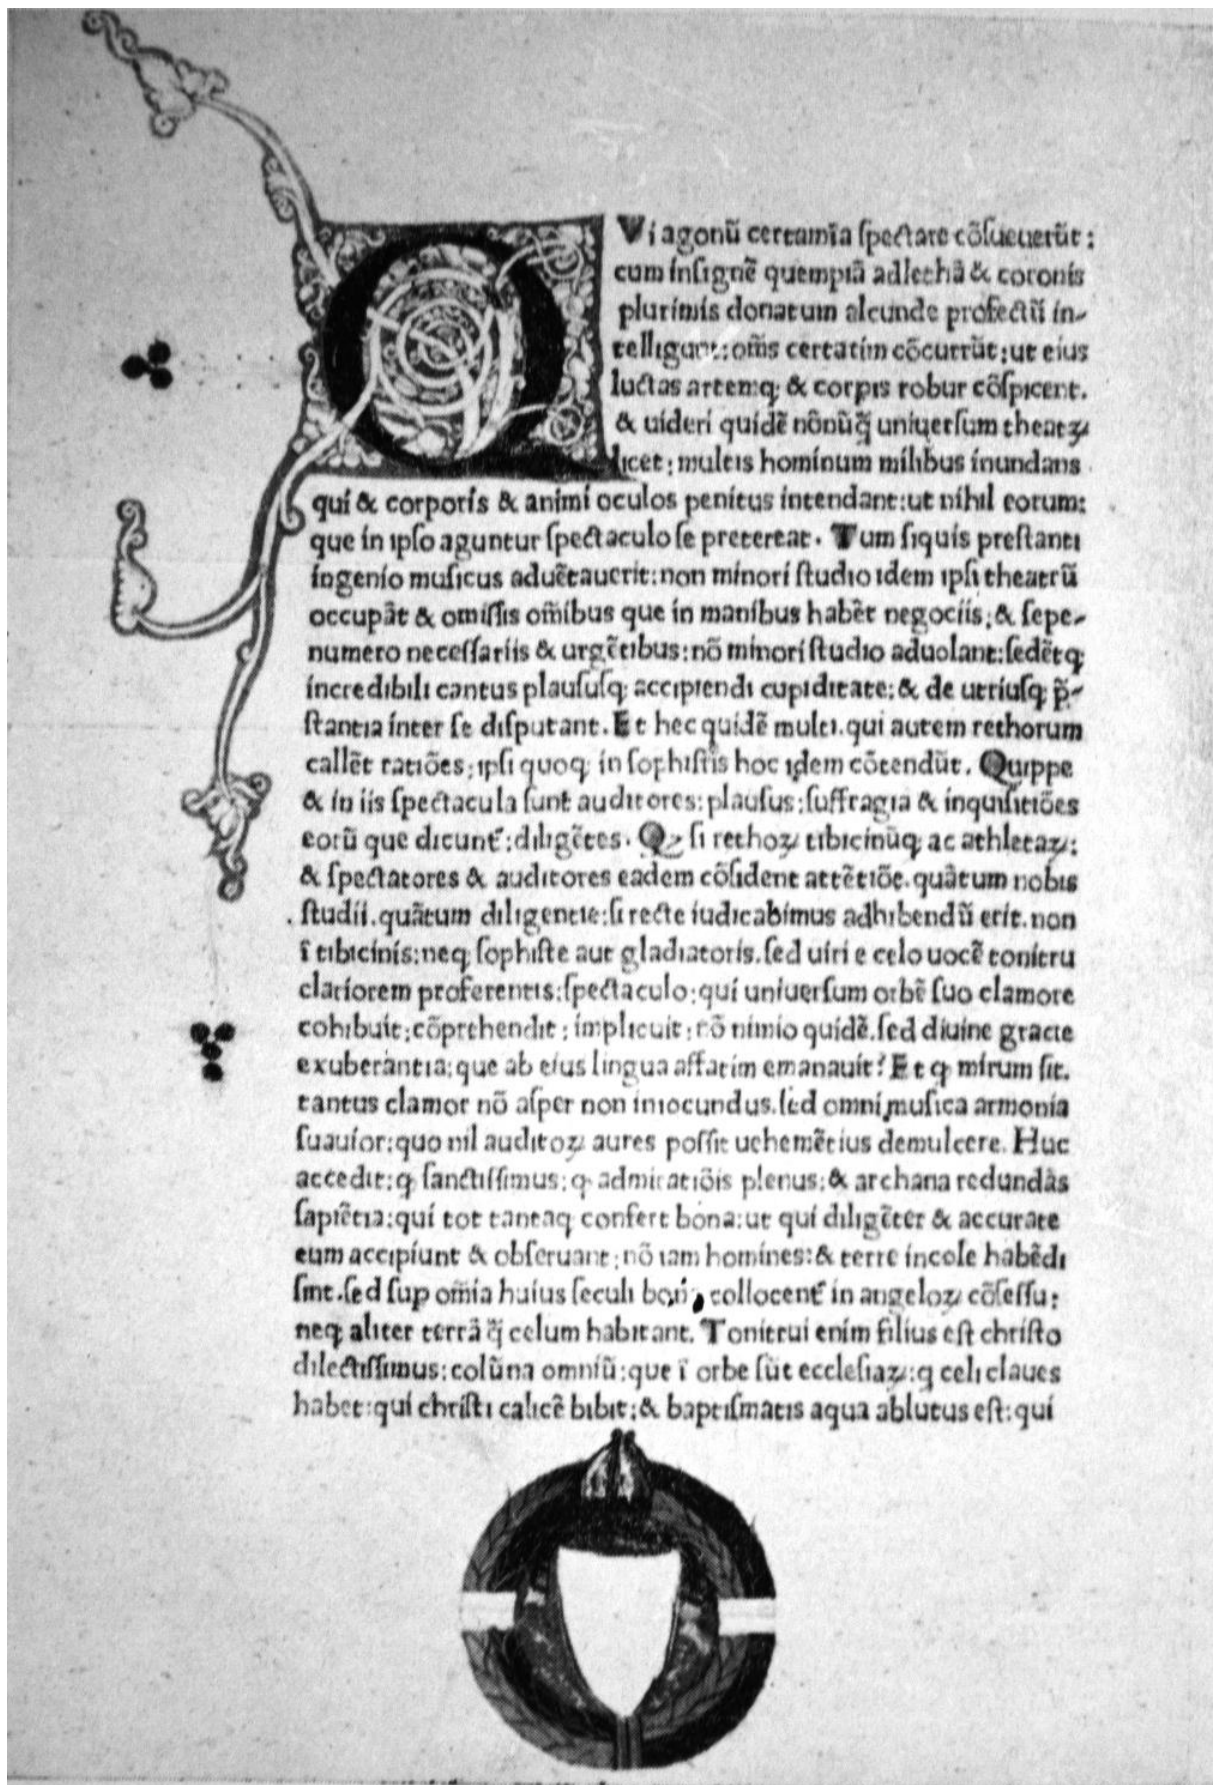 QVi agonũ certamĩa ſpectare cõſueuerũt:
cum inſignẽ quempiã adlethã & coronis
plurimis donatum alcunde profectũ in-
telligunt: om̃s certatim cõcurrũt: ut eius
luctas artemq; & corpis robur cõſpicent.
& uideri quidẽ nõnũq̃ uniuerſum theatꝝ
licet: multis hominum milibus inundans
qui & corporis & animi oculos penitus intendant: ut nihil eorum:
que in ipſo aguntur ſpectaculo ſe pretereat. Tum ſiquis preſtanti
ingenio muſicus aduẽtauerit: non minori ſtudio idem ipſi theatrũ
occupãt & omiſſis om̃ibus que in manibus habẽt negociis; & ſepe-
numero neceſſariis & urgẽtibus: nõ minori ſtudio aduolant: ſedẽtq;
incredibili cantus plauſuſq; accipiendi cupiditate; & de utriuſq; p̃-
ſtantia inter ſe diſputant. Et hec quidẽ multi. qui autem rethorum
callẽt ratiões; ipſi quoq; in ſophiſtis hoc idem cõtendũt. Quippe
& in iis ſpectacula ſunt auditores: plauſus: ſuffragia & inquiſitiões
eorũ que dicunt᷑: diligẽtes. Qꝫ ſi rethoꝝ tibicinũq; ac athletaꝝ:
& ſpectatores & auditores eadem cõſident attẽtiõe. quãtum nobis
ſtudii. quãtum diligentie: ſi recte iudicabimus adhibendũ erit. non
ĩ tibicinis: neq; ſophiſte aut gladiatoris. ſed uiri e celo uocẽ tonitru
clariorem proferentis: ſpectaculo: qui uniuerſum orbẽ ſuo clamore
cohibuit; cõprehendit; implicuit; nõ nimio quidẽ. ſed diuine gracie
exuberantia; que ab eius lingua affatim emanauit? Et ꝙ mirum ſit.
tantus clamor nõ aſper non iniocundus. ſed omni muſica armonia
ſuauior: quo nil auditoꝝ aures poſſit uehemẽtius demulcere. Huc
accedit: ꝙ ſanctiſſimus; ꝙ admiratiõis plenus: & archana redundãs
ſapiẽtia: qui tot tantaq; confert bona: ut qui diligẽter & accurate
eum accipiunt & obſeruant; nõ iam homines: & terre incole habẽdi
ſint. ſed ſup om̃ia huius ſeculi collocent᷑ in angeloꝝ cõſeſſu:
neq; aliter terrã q̃ celum habitant. Tonitrui enim filius eſt chriſto
dilectiſſimus: colũna omniũ: que ĩ orbe ſũt eccleſiaꝝ: q celi claues
habet: qui chriſti calicẽ bibit; & baptiſmatis aqua ablutus eſt: qui